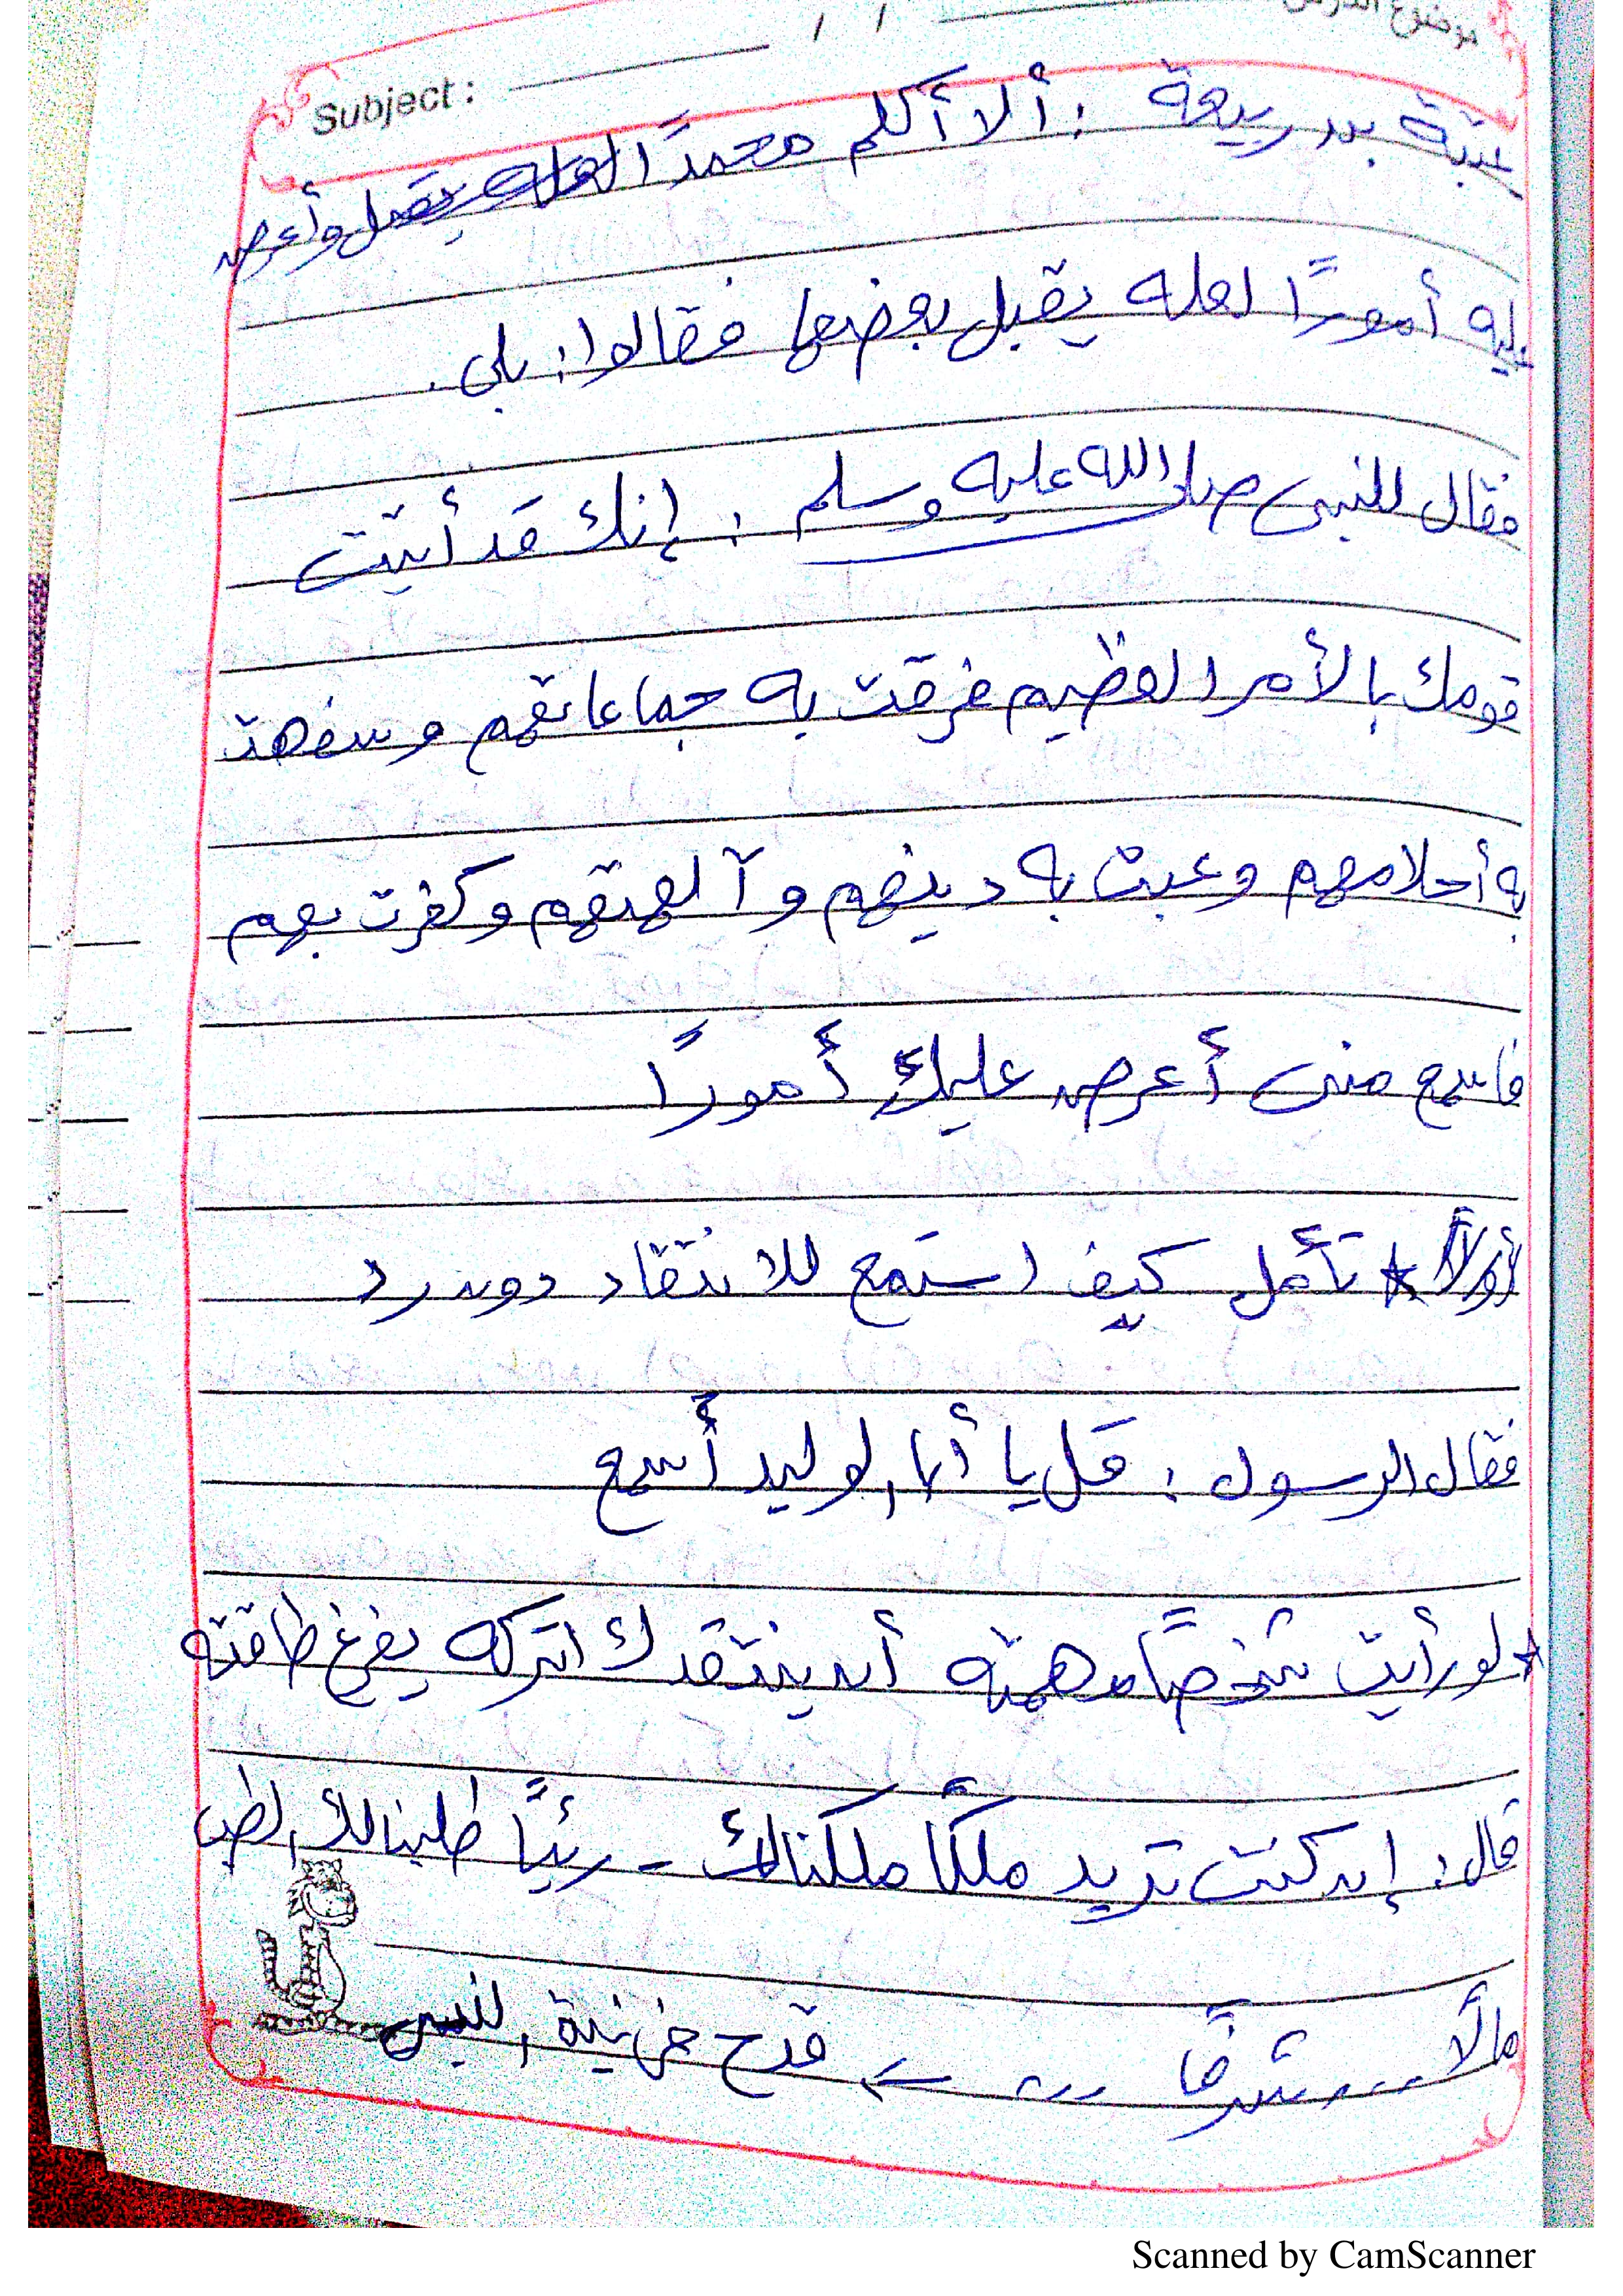 موضوع الدرس
Subject :
/ /
عتبة بن ربيعة : ألا أكلم محمدًا لعله يقبل وأعرض
عليه أمورًا لعله يقبل بعضها فقالوا : بلى .
فقال للنبى صلى الله عليه وسلم : إنك قد أتيت
قومك بالأمر العظيم فرقت به جماعاتهم وسفهت
به أحلامهم وعبت به دينهم وآلهتهم وكفرت بهم
فاسمع منى أعرض عليك أمورًا
أولاً * تأمل كيف استمع للانتقاد دون رد
فقال الرسول : قل يا أبا الوليد أسمع
* لو رأيت شخصًا همته أن ينتقدك اتركه يفرغ طاقته
قال : إن كنت تريد ملكًا ملكناك - رئيًا طلبنا لك الطب
مالاً --- شرفًا --- ← قدح فى نية النبى
Scanned by CamScanner